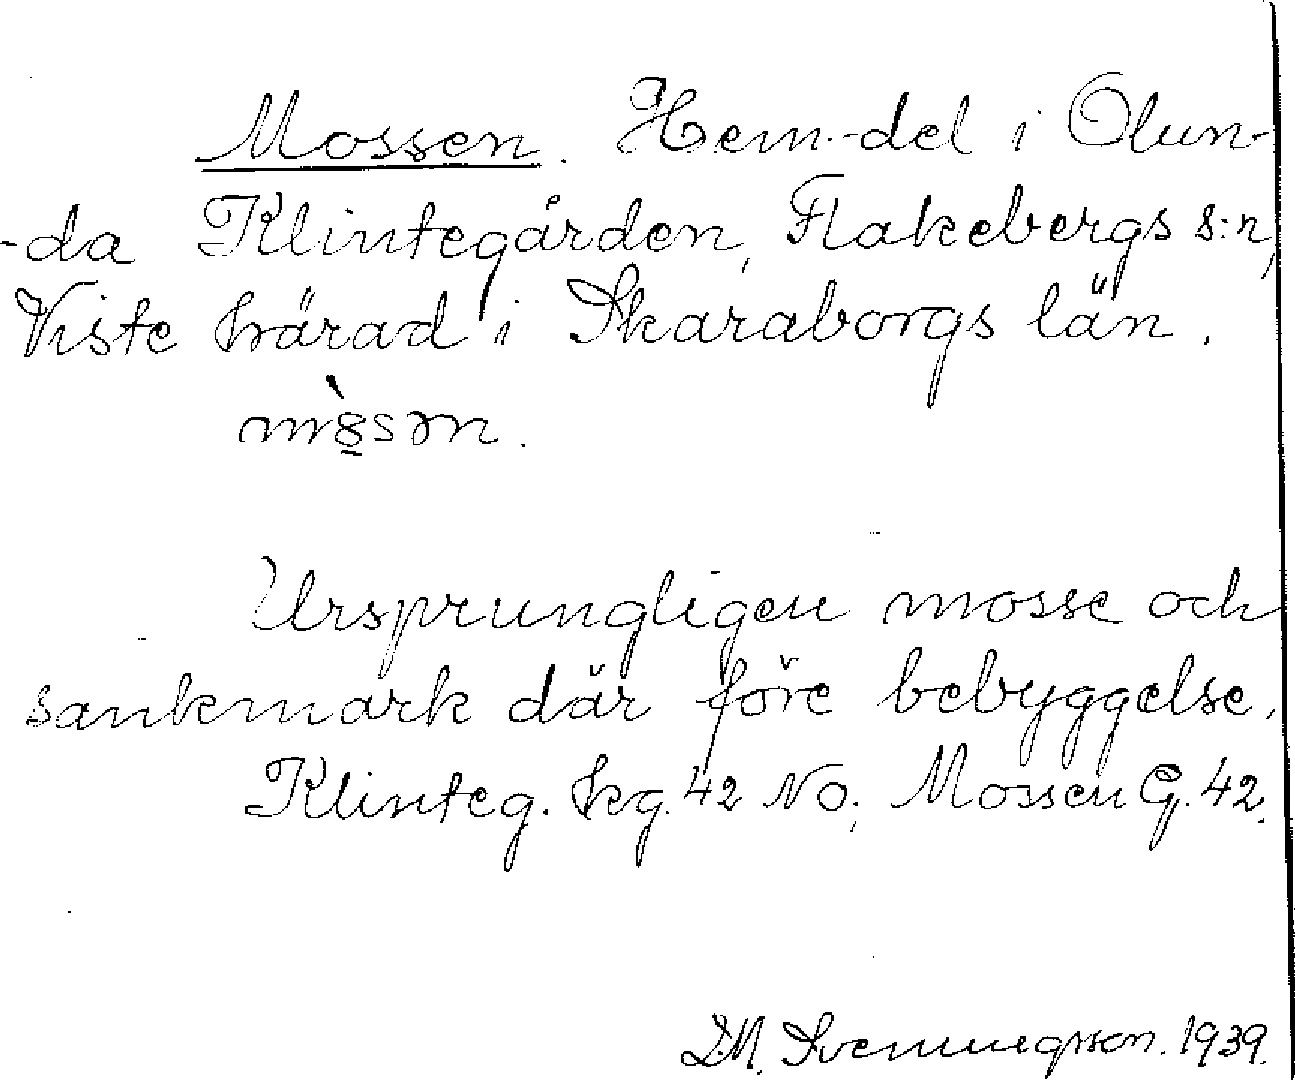 Mossen. Hem.-del i Olun-
-da Klintegården, Flakebergs s:n,
Viste härad i Skaraborgs län.
Ursprungligen mosse och
sankmark där före bebyggelse.
Klinteg. hg. 42 NO; Mossen G. 42.
D.M. Svenningsson. 1939.